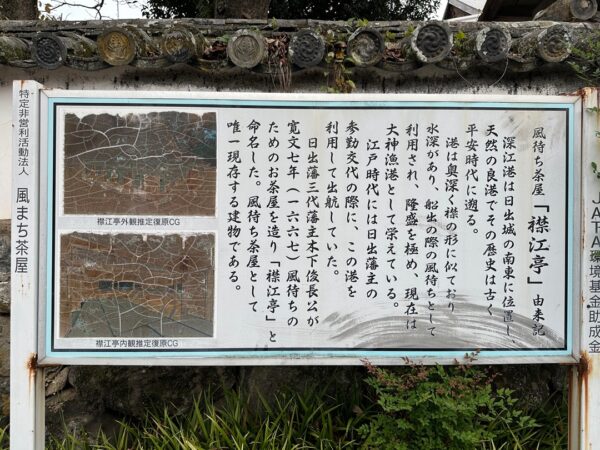 風待ち茶屋「襟江亭」由来記
深江港は日出城の南東に位置し、
天然の良港でその歴史は古く
平安時代に遡る。
港は奥深く襟の形に似ており
水深があり、船出の際の風待ちとして
利用され、隆盛を極め、現在は
大神漁港として栄えている。
江戸時代には日出藩主の
参勤交代の際に、この港を
利用して出航していた。
日出藩三代藩主木下俊長公が
寛文七年（一六六七）風待ちの
ためのお茶屋を造り「襟江亭」と
命名した。風待ち茶屋として
唯一現存する建物である。
襟江亭外観推定復原CG
襟江亭内観推定復原CG
特定非営利活動法人
風まち茶屋
JATA環境基金助成金